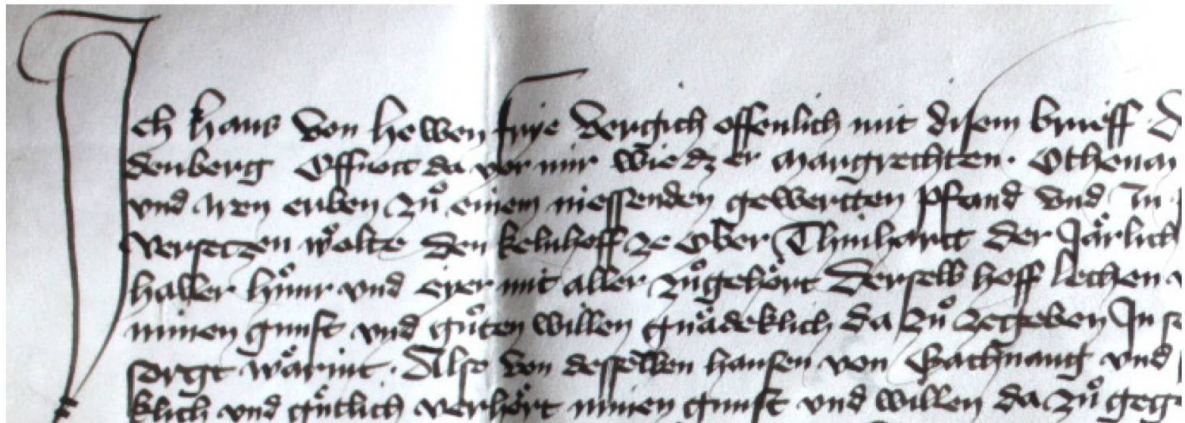 Ich Hans von Hewen frye vergich offenlich mit disem brieff
denberg Offnott da vor mir wie dz er Margrechten. Othenan
vnd Iren erben zů einem niessenden gewertten pfand vnd In
versetzen wölte den kelnhoff ze Ober der Järlich
haber hůnr vnd eyer mit aller zůgehört Derselb hoff lechen
minen gunst vnd gůten willen gnädeklich da zů zegeben In
sorgt wärint. Also von desselben hansen von Bachnang vnd
klich vnd gütlich verhört minen gunst vnd willen da zů geg